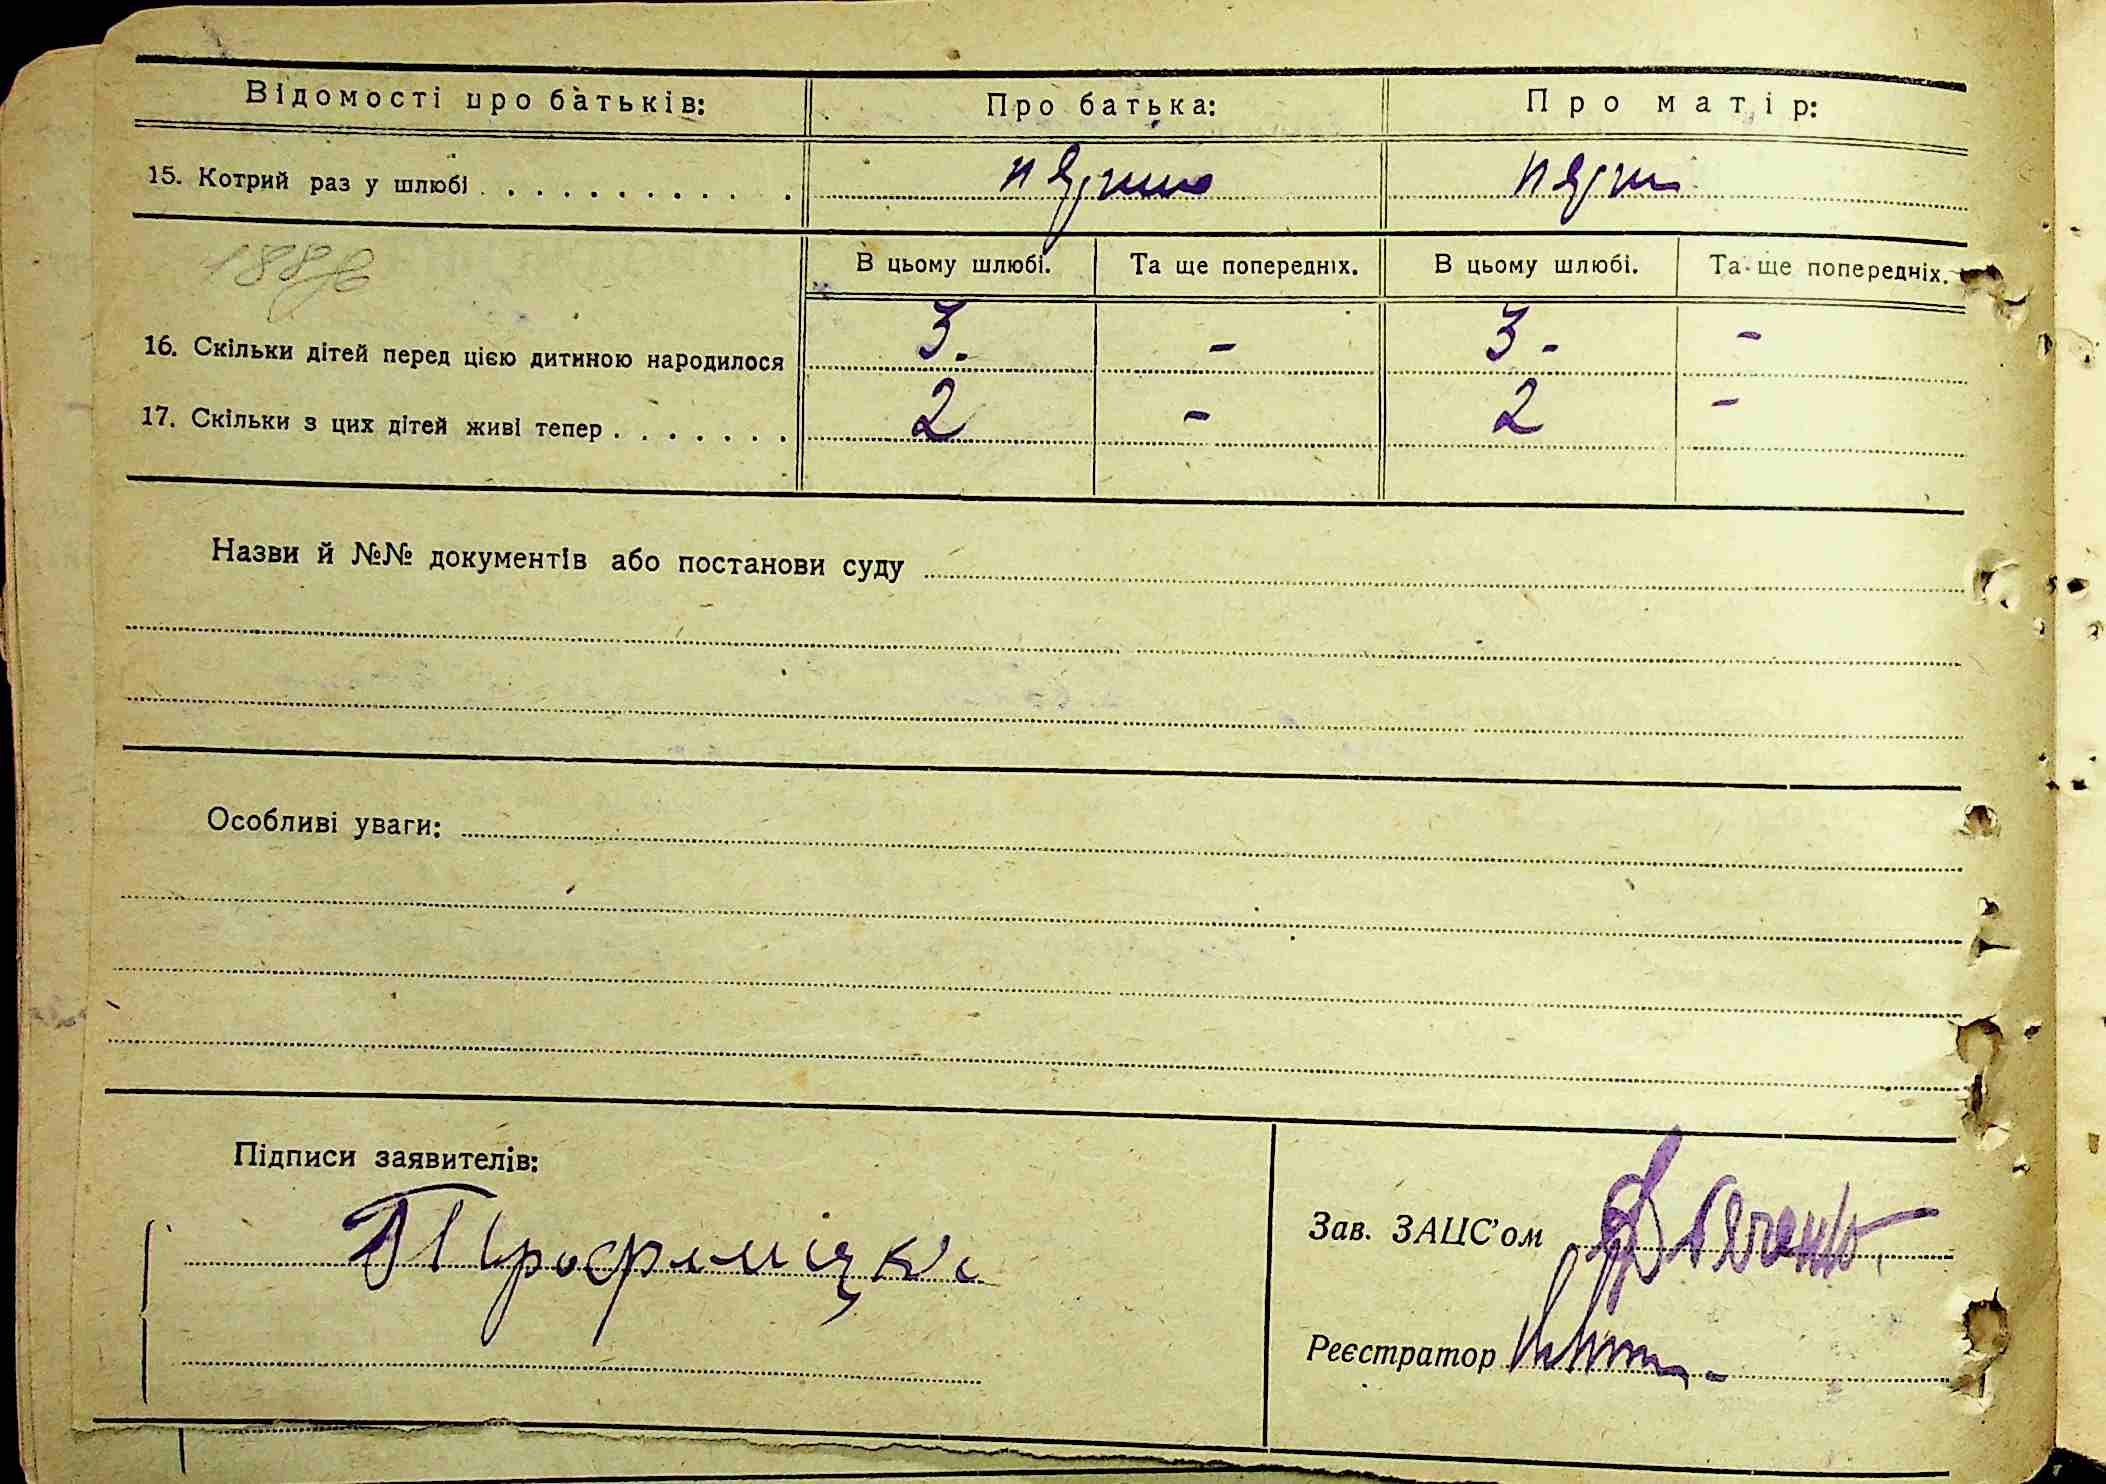 Відомості про батьків: Про батька: Про матір:
15. Котрий раз у шлюбі . . . . . . . . . . .
В цьому шлюбі. Та ще попередніх. В цьому шлюбі. Та ще попередніх.
16. Скільки дітей перед цією дитиною народилося 3. - 3 - -
17. Скільки з цих дітей живі тепер . . . . . . . 2 - 2 -
Назви й №№ документів або постанови суду
Особливі уваги:
Підписи заявителів:
Зав. ЗАЦС'ом
Реєстратор